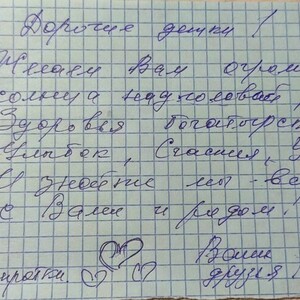 Дорогие детки!
Желаем Вам огром
солнца над головой
Здоровья богатырск
Улыбок, Счастия,
И знайте мы - вс
с Вами и рядом!
Ваши
друзья